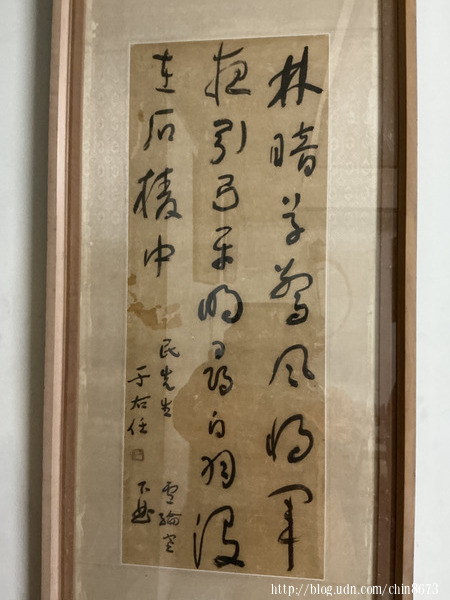 林暗草驚風將軍
夜引弓平明尋白羽沒
在石棱中
民先生
于右任
http://blog.udn.com/chin8673